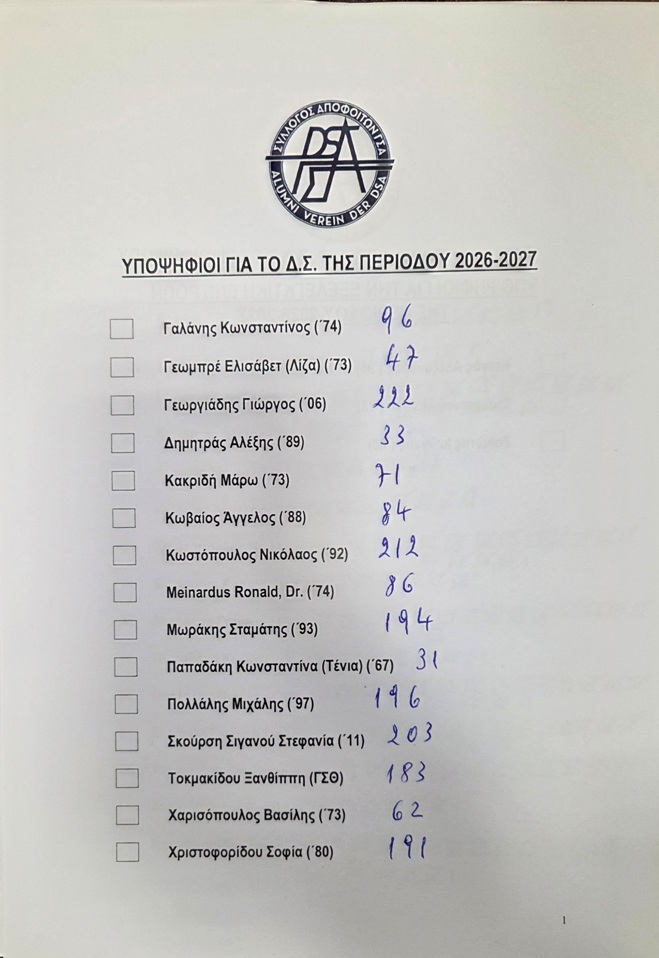 ΣΥΛΛΟΓΟΣ ΑΠΟΦΟΙΤΩΝ ΓΣΑ
DSA
ΓΣΑ
ALUMNI VEREIN DER DSA
ΥΠΟΨΗΦΙΟΙ ΓΙΑ ΤΟ Δ.Σ. ΤΗΣ ΠΕΡΙΟΔΟΥ 2026-2027
Γαλάνης Κωνσταντίνος (΄74) 96
Γεωμπρέ Ελισάβετ (Λίζα) (΄73) 47
Γεωργιάδης Γιώργος (΄06) 222
Δημητράς Αλέξης (΄89) 33
Κακριδή Μάρω (΄73) 71
Κωβαίος Άγγελος (΄88) 84
Κωστόπουλος Νικόλαος (΄92) 212
Meinardus Ronald, Dr. (΄74) 86
Μωράκης Σταμάτης (΄93) 194
Παπαδάκη Κωνσταντίνα (Τένια) (΄67) 31
Πολλάλης Μιχάλης (΄97) 196
Σκούρση Σιγανού Στεφανία (΄11) 203
Τοκμακίδου Ξανθίππη (ΓΣΘ) 183
Χαρισόπουλος Βασίλης (΄73) 62
Χριστοφορίδου Σοφία (΄80) 191
1